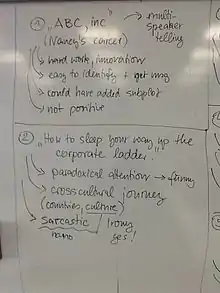 ① „ABC, inc" → multi-
speaker
telling
(Nancy's career)
→ hard work, innovation
→ easy to identify + get msg
→ could have added subplot
→ not positive
② „How to sleep your way up the
corporate ladder"
→ paradoxical attention → funny
→ crosscultural journey
(countries, culture)
→ sarcastic / Irony
nano yes!